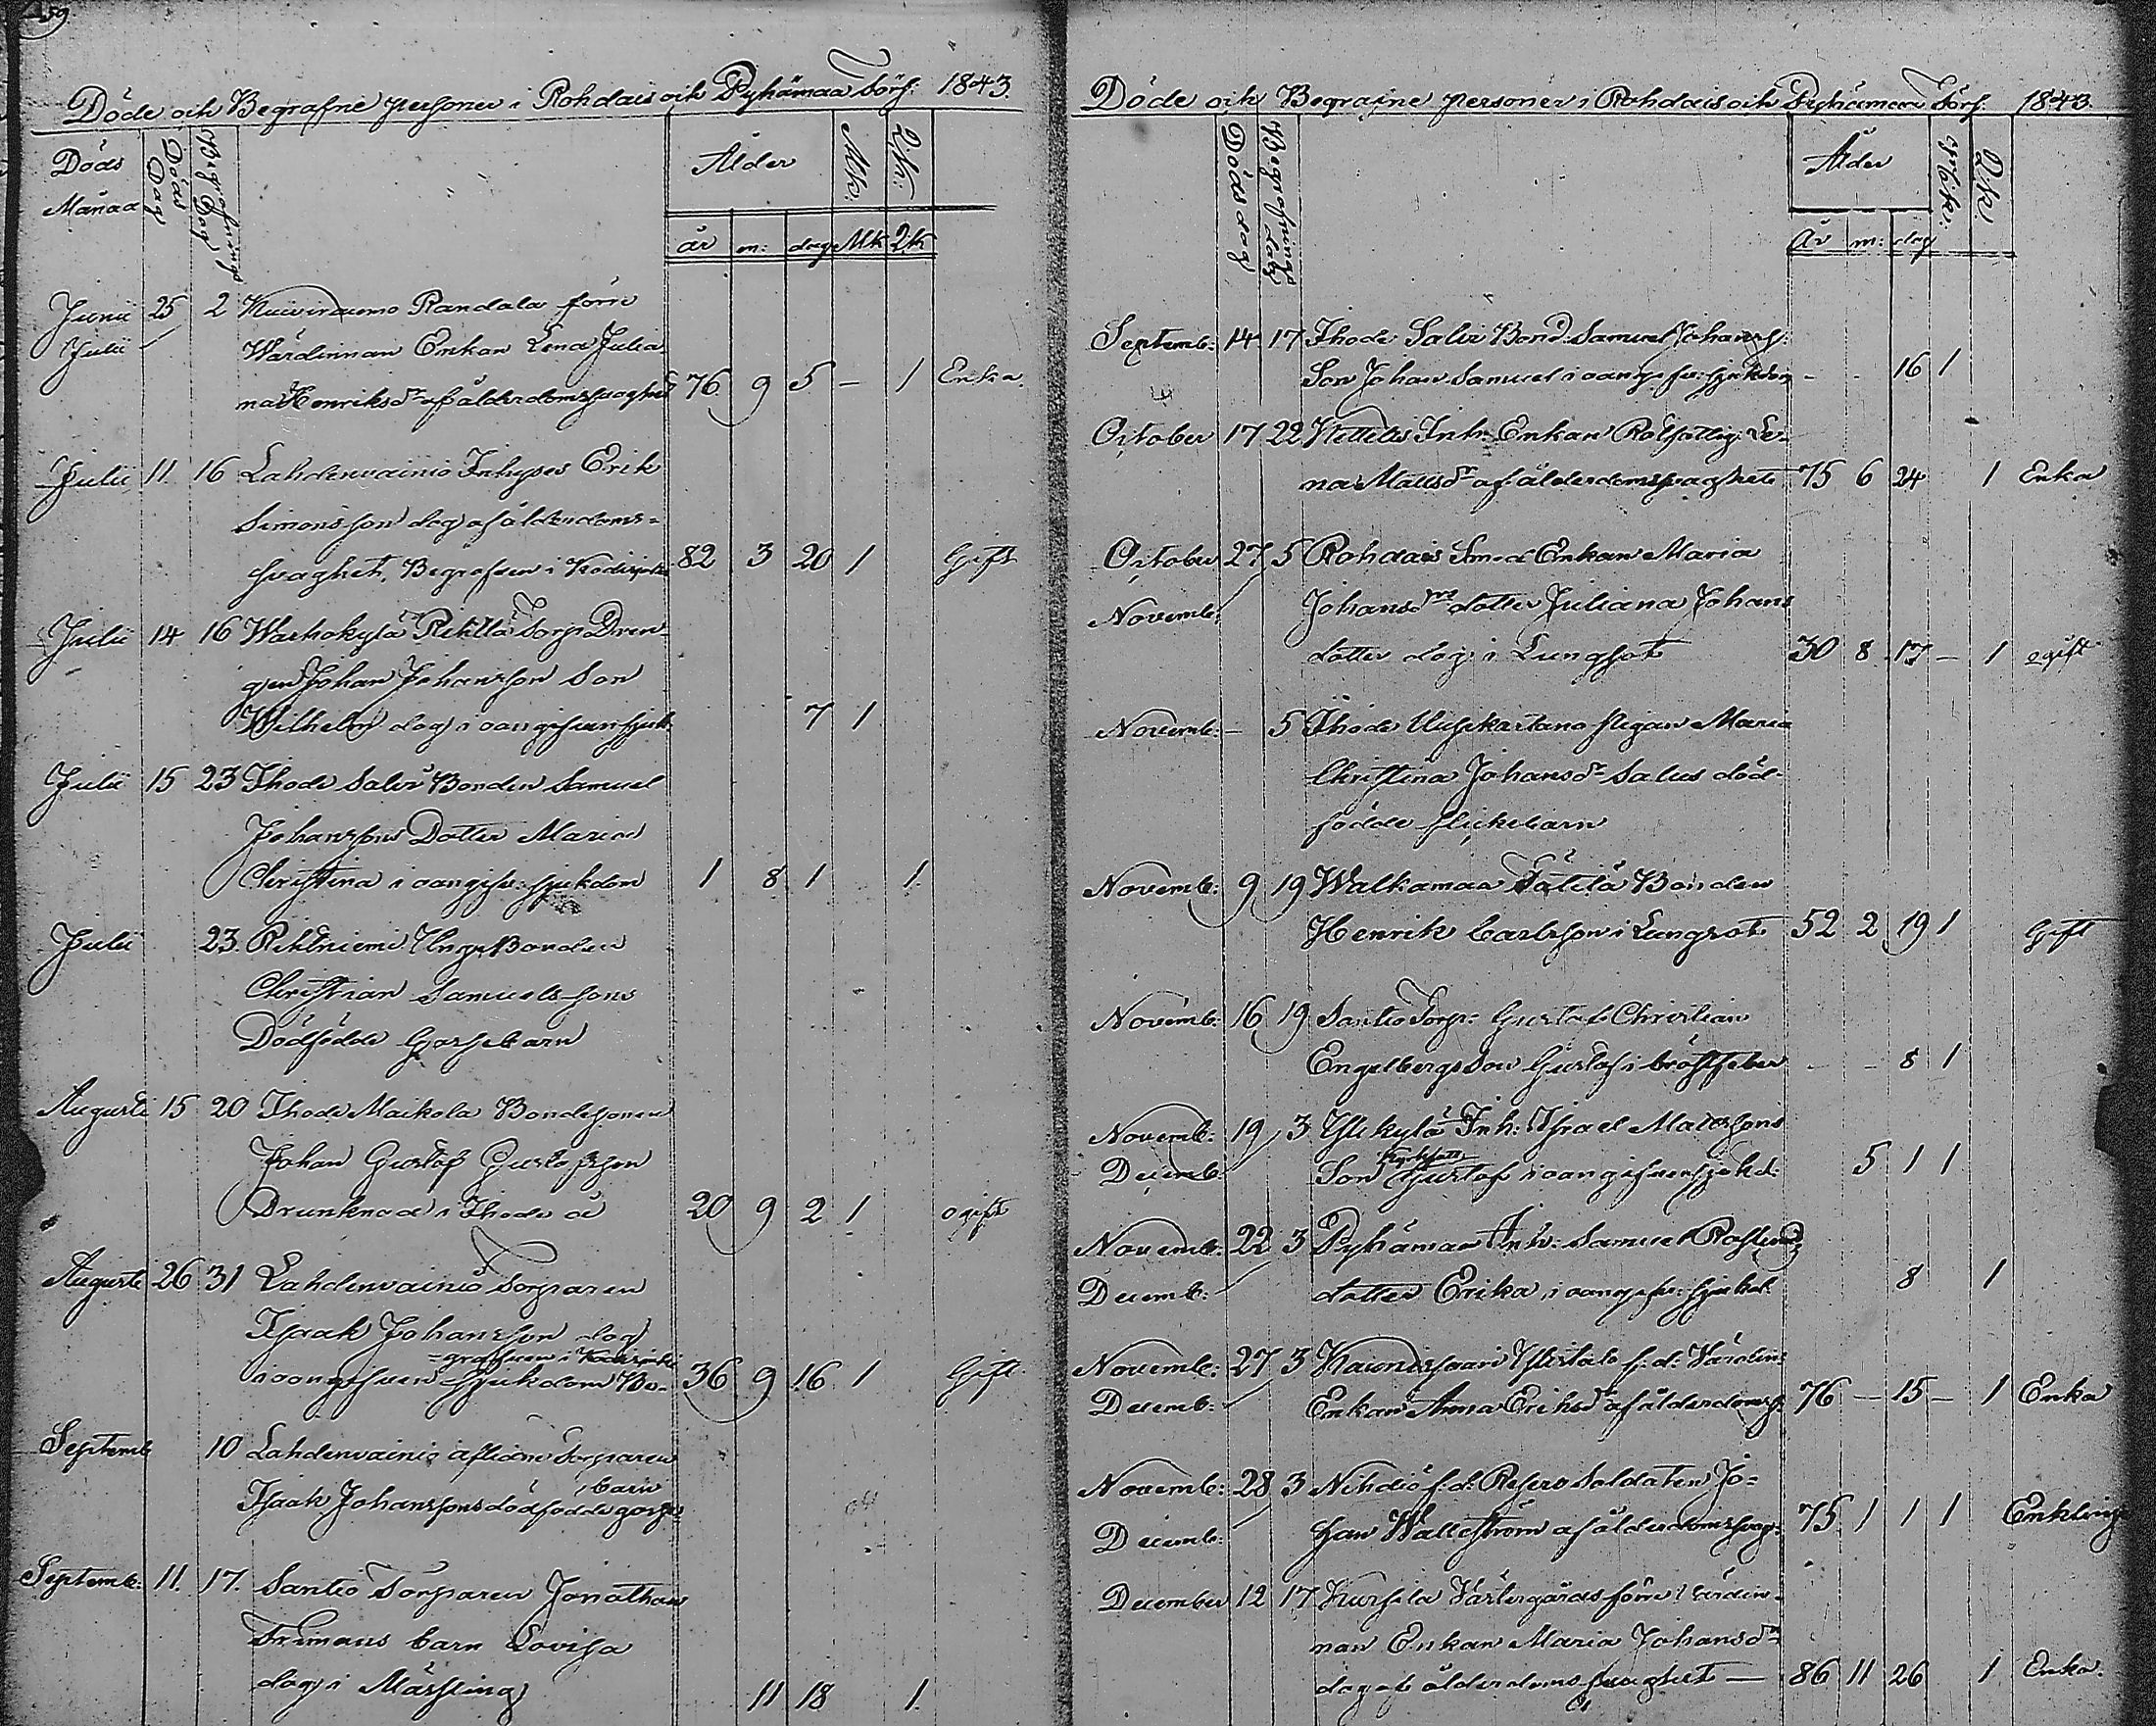 59.
Döde och Begrafne personer i Rohdais och Pyhämaa Förs: 1843.
Döds Månad
Döds Dag
Begrafnings Dag
Ålder
Mk:
Qk:
år m: dag Mk Qk
Junii 25 2 Kuivirauma Randala förre
Julii Wärdinnan Enkan Lena Julia-
na Henriksdr af ålderdomsvaghet 76 9 5 — 1 Enka.
Julii 11 16 Lahdenvainio Inhyses Erik
Simonsson dog af ålderdoms=
svaghet, Begrafven i 82 3 20 1 Gift
Julii 14 16 Warhokylä Torp Dren-
gen Johan Johansson Son
Wilhelm dog i oangifven sjukd 7 1
Julii 15 23 Ihode Salvi Bonden Samuel
Johanssons Dotter Maria
Christina i oangifv: sjukdom 1 8 1 1.
Julii 23. Pihlniemi Bonden
Christian Samuelssons
Dödfödde Gossebarn
Augusti 15 20 Ihode Maikola Bondesonen
Johan Gustaf Gustafsson
Drunknad i Ihode å 20 9 2 1 ogift
Augusti 26 31 Lahdenvainio Torparen
Isaak Johansson dog
=grafven i
i oangifven sjukdom Be- 36 9 16 1 Gift
Septemb 10 Lahdenvainio aflidne Torparen
barn
Isaak Johanssons dödfödde gosse
Septemb: 11. 17. Santio Torparen Jonathan
Frimans barn Lovisa
dog i Mässling 11 18 1.
Döde och Begrafne personer i Rohdais och Pyhämaa Förs: 1843.
Döds dag
Begrafnings dag
Ålder
Mk:
Qk
År m: dag
Septemb: 14 17 Ihode Salvi Bond: Samuel Johanss:
Son Johan Samuel i oangifv: sjukdom - - 16 1
October 17 22 Inh: Enkan Rotfattig: Le-
na Mattsdr af ålderdomsvaghet 75 6 24 1 Enka
October 27 5 Rohdais Smed Enkan Maria
Novemb: Johansdrs dotter Juliana Johans
dotter dog i Lungsot 30 8 17 — 1 ogift
Novemb: — 5 Ihode Uusikartano Pigan Maria
Christina Johansdr Salus död-
födde flickebarn
Novemb: 9 19 Walkamaa Bonden
Henrik Carlsson i Lungsot 52 2 19 1 Gift
Novemb: 16 19 Santio Torp: Gustaf Christian
Engelbergs Son Gustaf i bröstfeber - - 8 1
Novemb: 19 3 Ylikylä Inh: Israel Matssons
Decemb: Son Gustaf i oangifven sjukd: 5 1 1
Novemb: 22 3 Pyhämaa Inh: Samuel
Decemb: dotter Erika i oangifv: sjukd: 8 1
Novemb: 27 3 Kaunissaari Ylistalo f: d: Värdin:
Decemb: Enkan Anna Eriksdr af ålderdomsv: 76 — 15 — 1 Enka
Novemb: 28 3 Nihdiö f: d: Reserv Soldaten Jo-
Decemb: han Wallström af ålderdomsvag: 75 1 1 1 Enkling
December 12 17 Kursila Västergårds förre Värdin-
nan Enkan Maria Johansdr
dog af ålderdoms svaghet — 86 11 26 1 Enka.